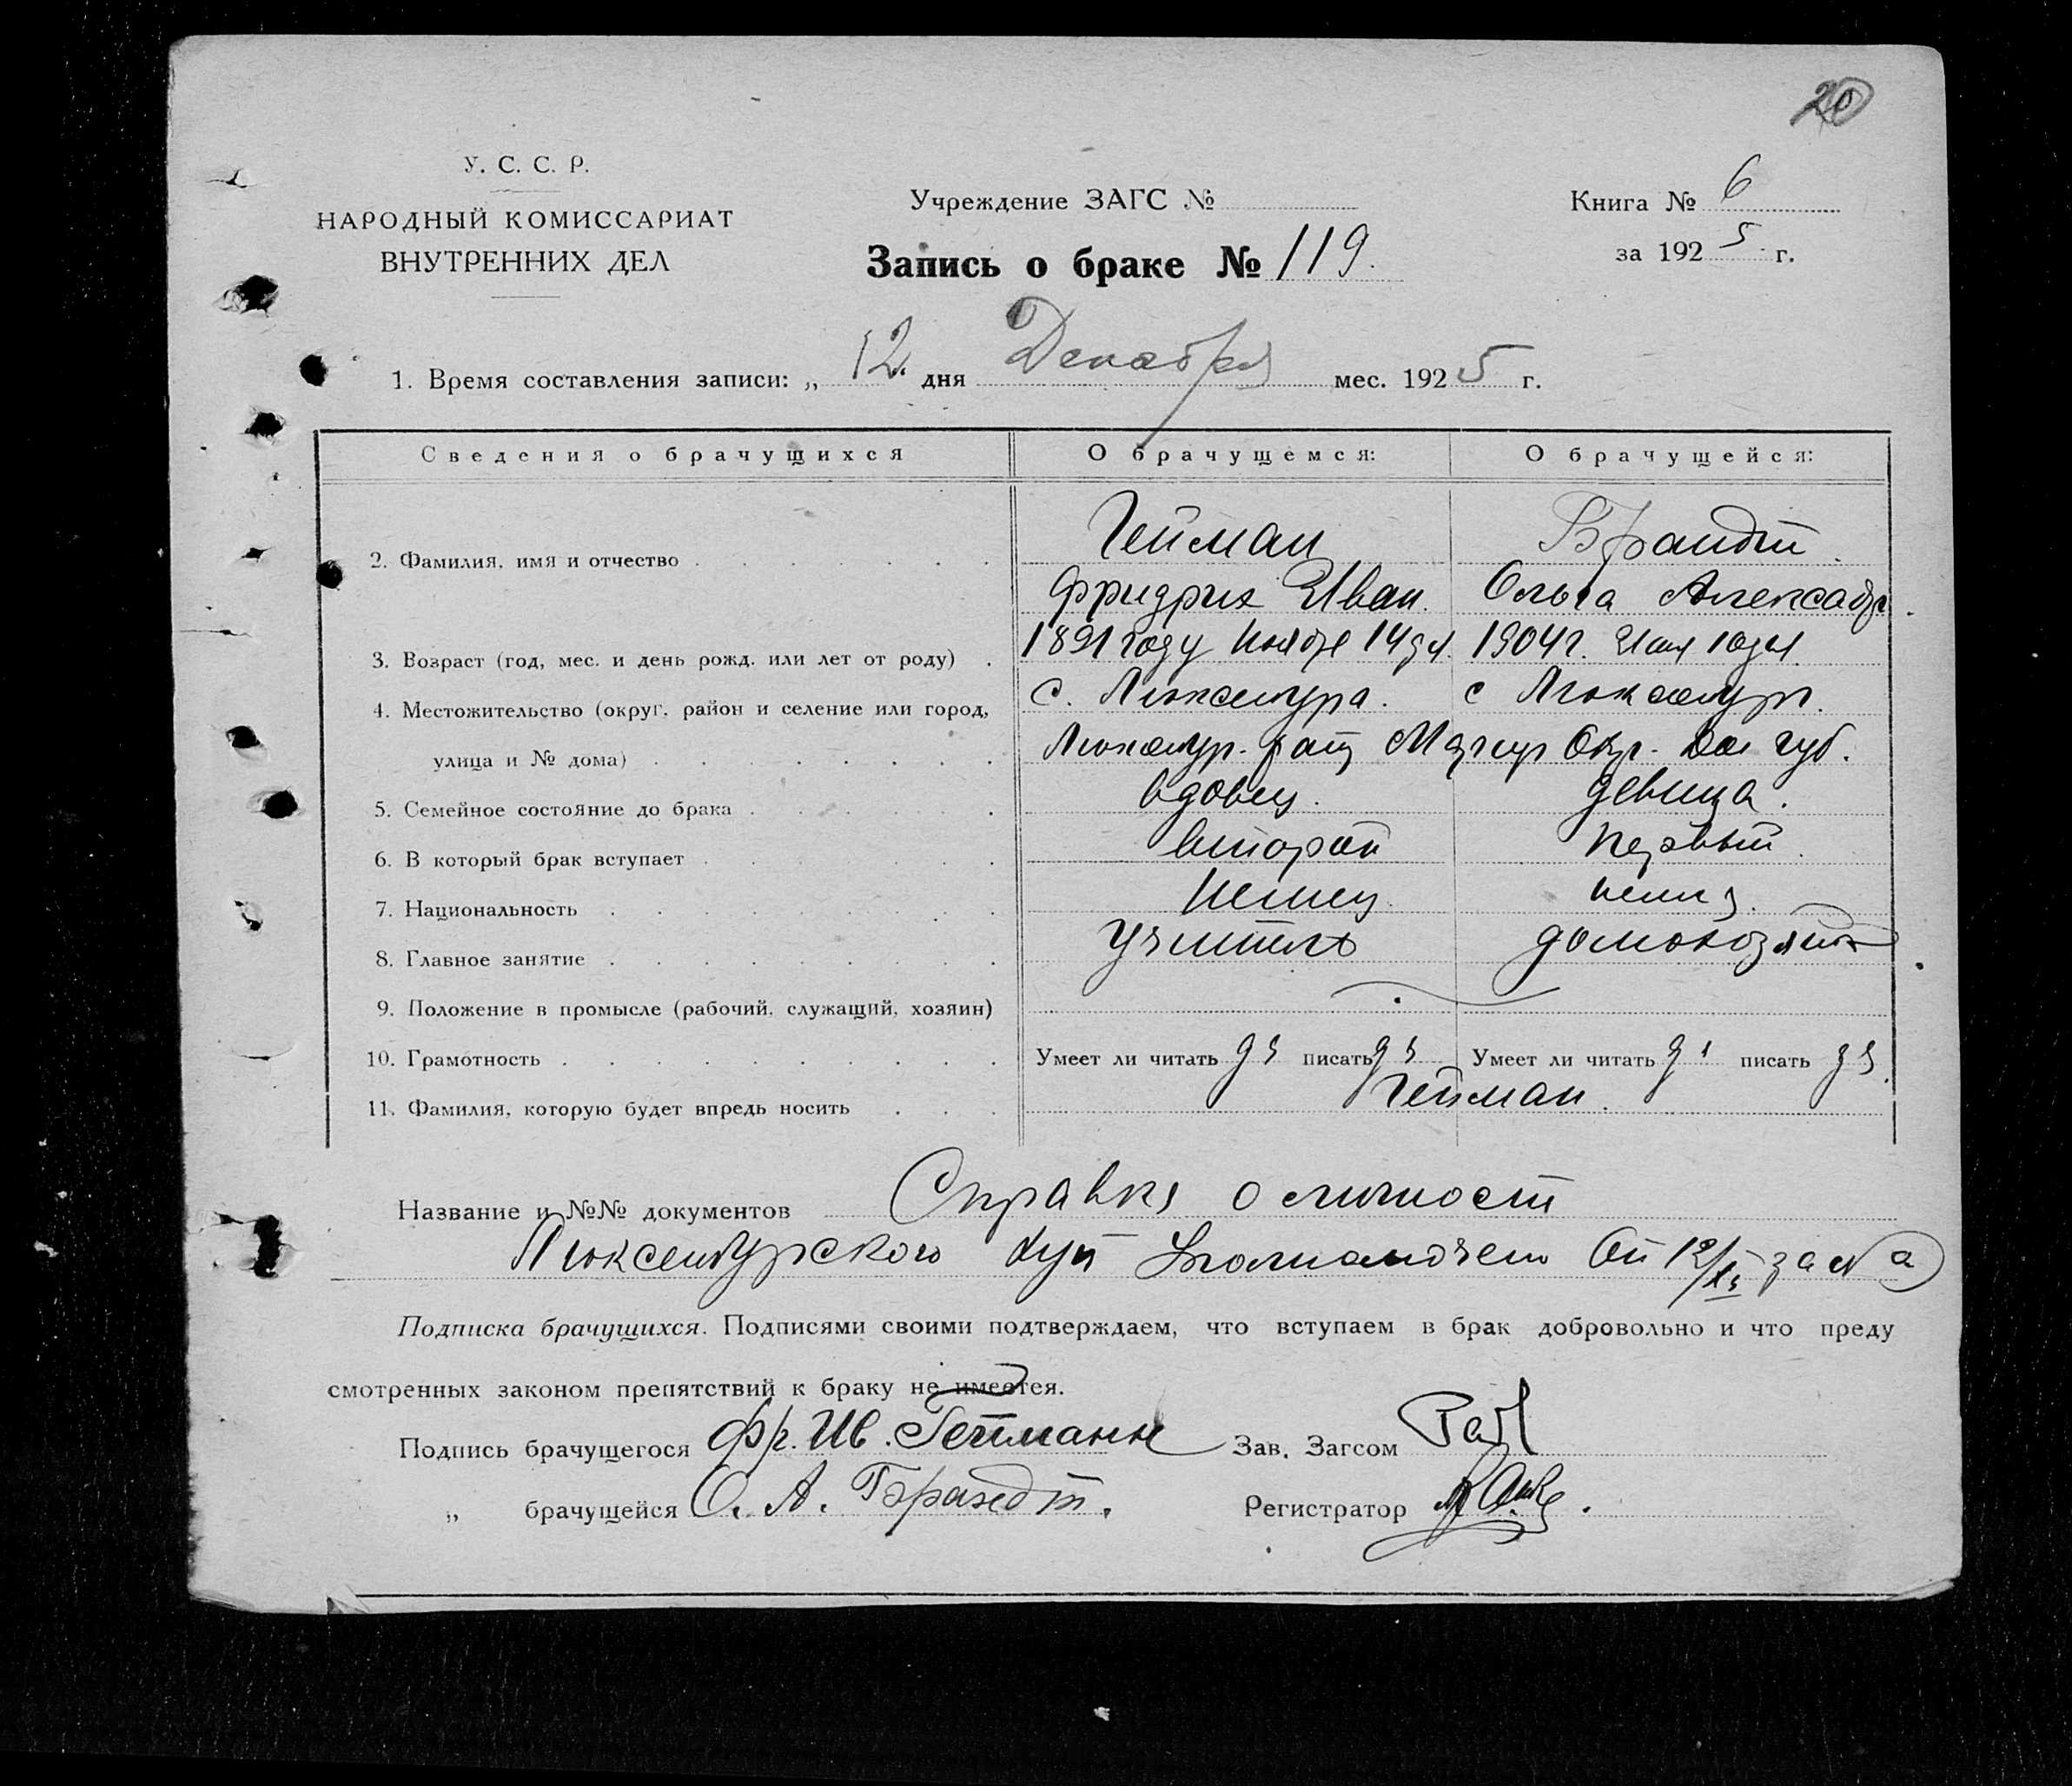 20
У. С. С. Р.
НАРОДНЫЙ КОМИССАРИАТ
ВНУТРЕННИХ ДЕЛ
Учреждение ЗАГС №
Запись о браке № 119.
Книга № 6
за 1925 г.
1. Время составления записи: „ 12 дня Декабря мес. 1925 г.
Сведения о брачущихся О брачущемся: О брачущейся:
2. Фамилия, имя и отчество Гейман Брандт
Фридрих Иван. Ольга Александр.
3. Возраст (год, мес. и день рожд. или лет от роду) 1891 году Ноября 14 дн. 1904 г. 10 дн.
4. Местожительство (округ, район и селение или город, с. Люксембург. с Люксембург.
улица и № дома) Люксембур. Окр. губ.
5. Семейное состояние до брака вдовец. девица.
6. В который брак вступает второй первый.
7. Национальность Немец немк
8. Главное занятие Учитель домохозяйка
9. Положение в промысле (рабочий, служащий, хозяин)
10. Грамотность Умеет ли читать да писать да Умеет ли читать да писать да
11. Фамилия, которую будет впредь носить Гейман.
Название и №№ документов Справка о личност
Люксембургского от 12/XII за №
Подписка брачущихся. Подписями своими подтверждаем, что вступаем в брак добровольно и что преду
смотренных законом препятствий к браку не имеется.
Подпись брачущегося Фр. Ив. Гейманн Зав. Загсом
„ брачущейся О. А. Брандт. Регистратор